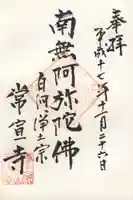 奉拝
平成十七年十一月二十六日
南無阿弥陀佛
浄土宗
常宣寺